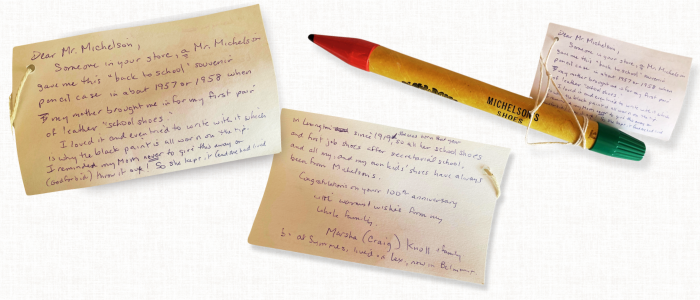 Dear Mr. Michelson,
Someone in your store, a Mr. Michelson
gave me this "back to school" souvenir
pencil case in about 1957 or 1958 when
my mother brought me in for my first pair
of leather "school shoes."
I loved it and even tried to write with it which
is why the black paint is all worn on the tip.
I reminded my Mom never to give this away or
(God forbid) throw it away! So she kept it
in Lexington since 1919, so all her school shoes
and first job shoes after secretarial school
and all my and my own kids' shoes have always
been from Michelsons.
Congratulations on your 100th anniversary
with warmest wishes from my
whole family,
Marsha (Craig) Knoll & family
lived in Lex, now in
MICHELSON'S
SHOES
Dear Mr. Michelson,
Someone in your store, a Mr. Michelson
gave me this "back to school" souvenir
pencil case in about 1957 or 1958 when
my mother brought me in for my first pair